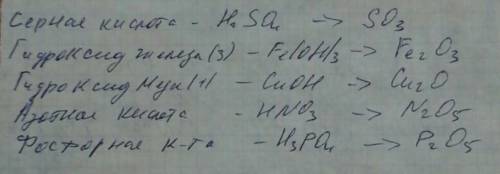 Серная кислота - H₂SO₄ -> SO₃
Гидроксид железа(3) - Fe(OH)₃ -> Fe₂O₃
Гидроксид меди(1) - CuOH -> Cu₂O
Азотная кислота - HNO₃ -> N₂O₅
Фосфорная к-та - H₃PO₄ -> P₂O₅